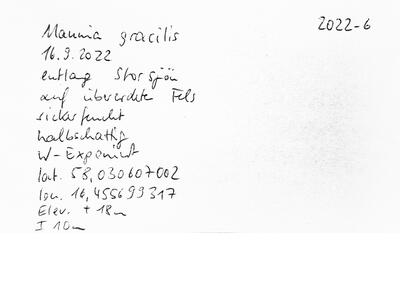 2022-6
Mannia gracilis
16.9.2022
entlang Storsjön
auf übererdete Fels
sickerfeucht
halbschattig
W-Exponiert
lat. 58,030607002
lon. 16,455699317
Elev. + 18m
I 10m